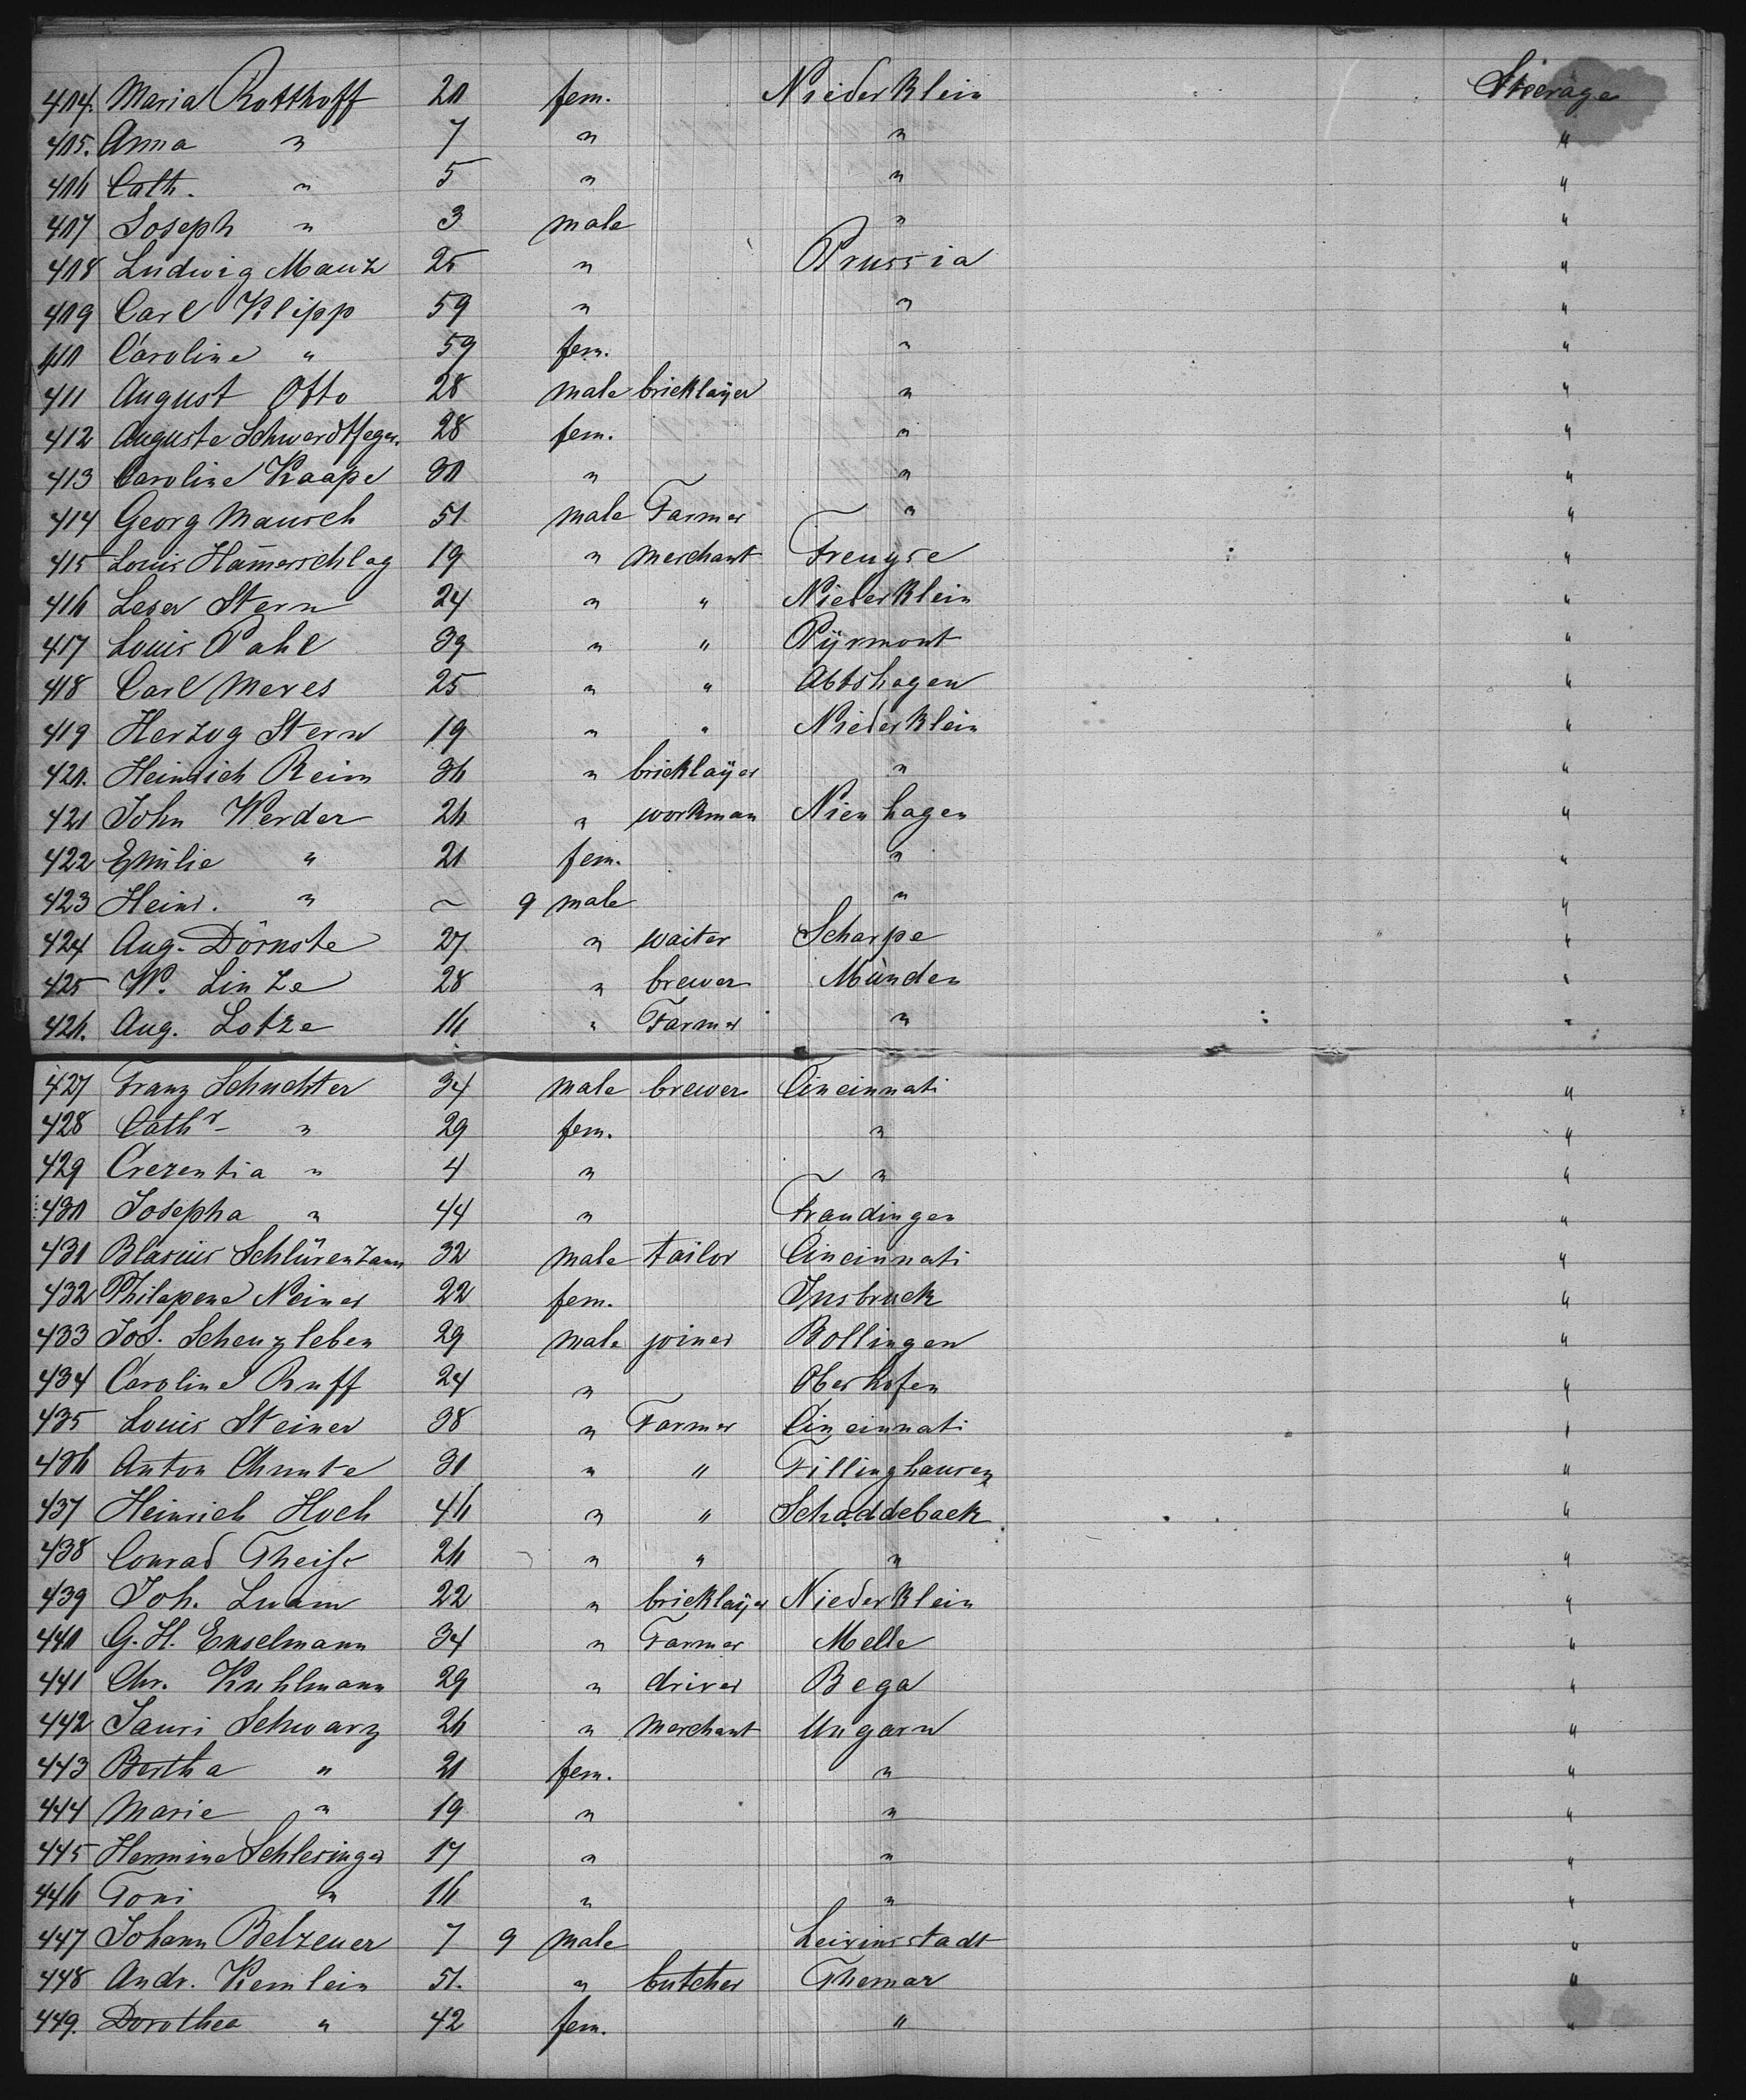 404. Maria Rotthoff 20 fem. Niederklein Steerage
405. Anna " 7 " " "
406 Cath. " 5 " " "
407 Joseph " 3 male " "
408 Ludwig Mauz 25 " Prussia "
409 Carl Klipp 59 " " "
410 Caroline " 59 fem. " "
411 August Otto 28 male bricklayer " "
412 Auguste Schwerdtfeger. 28 fem. " "
413 Caroline Kaape 30 " " "
414 Georg Mausch 51 male Farmer " "
415 Louis Ham̄erschlag 19 " merchant Treuyse "
416 Leser Stern 24 " " Niederklein "
417 Louis Pahl 39 " " Pÿrmont "
418 Carl Meves 25 " " Abtshagen "
419 Herzog Stern 19 " " Niederklein "
420. Heinrich Reim 36 " bricklayer " "
421 John Werder 26 " workman Nienhagen "
422 Emilie " 21 fem. " "
423 Heinr. " ~ 9 male " "
424 Aug. Dörnste 27 " waiter Scharpe "
425 W. Linze 28 " brewer Münden "
426. Aug. Lotze 16 " Farmer " "
427 Franz Schuchter 34 male brewer Cincinnati "
428 Cathr " 29 fem. " "
429 Crezentia " 4 " " "
430 Josepha " 44 " Trandingen "
431 Blasius Schlürenzann 32 male tailor Cincinnati "
432 Philapena Neiner 22 fem. Insbruck "
433 Jos. Scheuzleben 29 male joiner Bollingen "
434 Caroline Ruff 24 " Oberhofen "
435 Louis Steiner 38 " Farmer Cincinnati "
436 Anton Chunte 30 " " Fillinghausen "
437 Heinrich Hoch 46 " " Schaddeback "
438 Conrad Theiss 26 " " " "
439 Joh. Luam 22 " bricklayer Niederklein "
440 G. H. Enselmann 34 " Farmer Melle "
441 Chr. Kuhlmann 29 " driver Bega "
442 Sauri Schwarz 26 " merchant Ungarn "
443 Bertha " 21 fem. " "
444 Marie " 19 " " "
445 Hermine Schlesinger 17 " " "
446 Toni " 16 " " "
447 Johann Belzeuer 7 9 male Leivinsstadt "
448 Andr. Kemlein 51. " butcher Themar "
449. Dorothea " 42 fem. " "